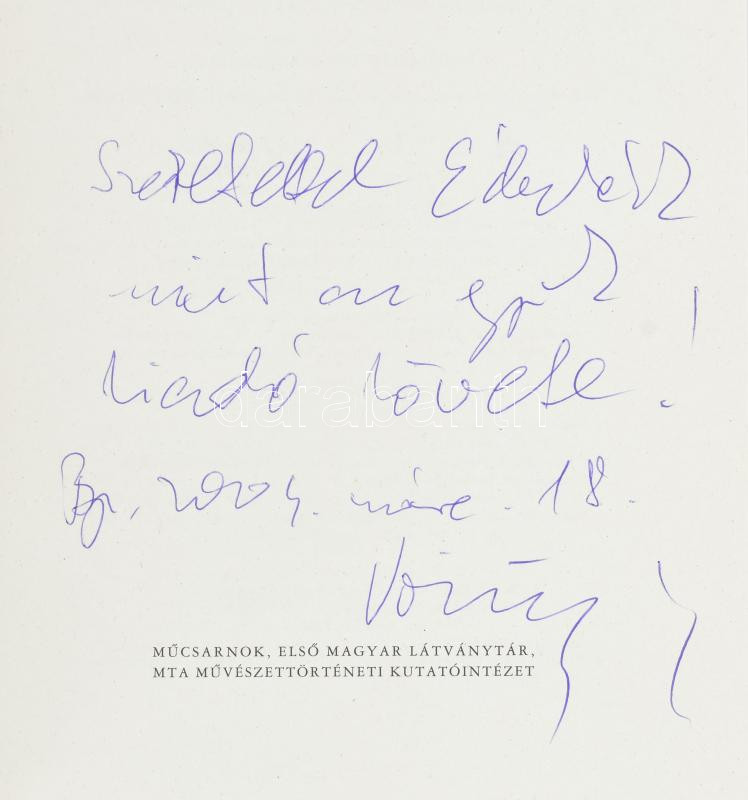 Szeretettel
mint az egyik !
kiadó követe.
Bp, 2004. márc. 18.
MŰCSARNOK, ELSŐ MAGYAR LÁTVÁNYTÁR,
MTA MŰVÉSZETTÖRTÉNETI KUTATÓINTÉZET
darabanth